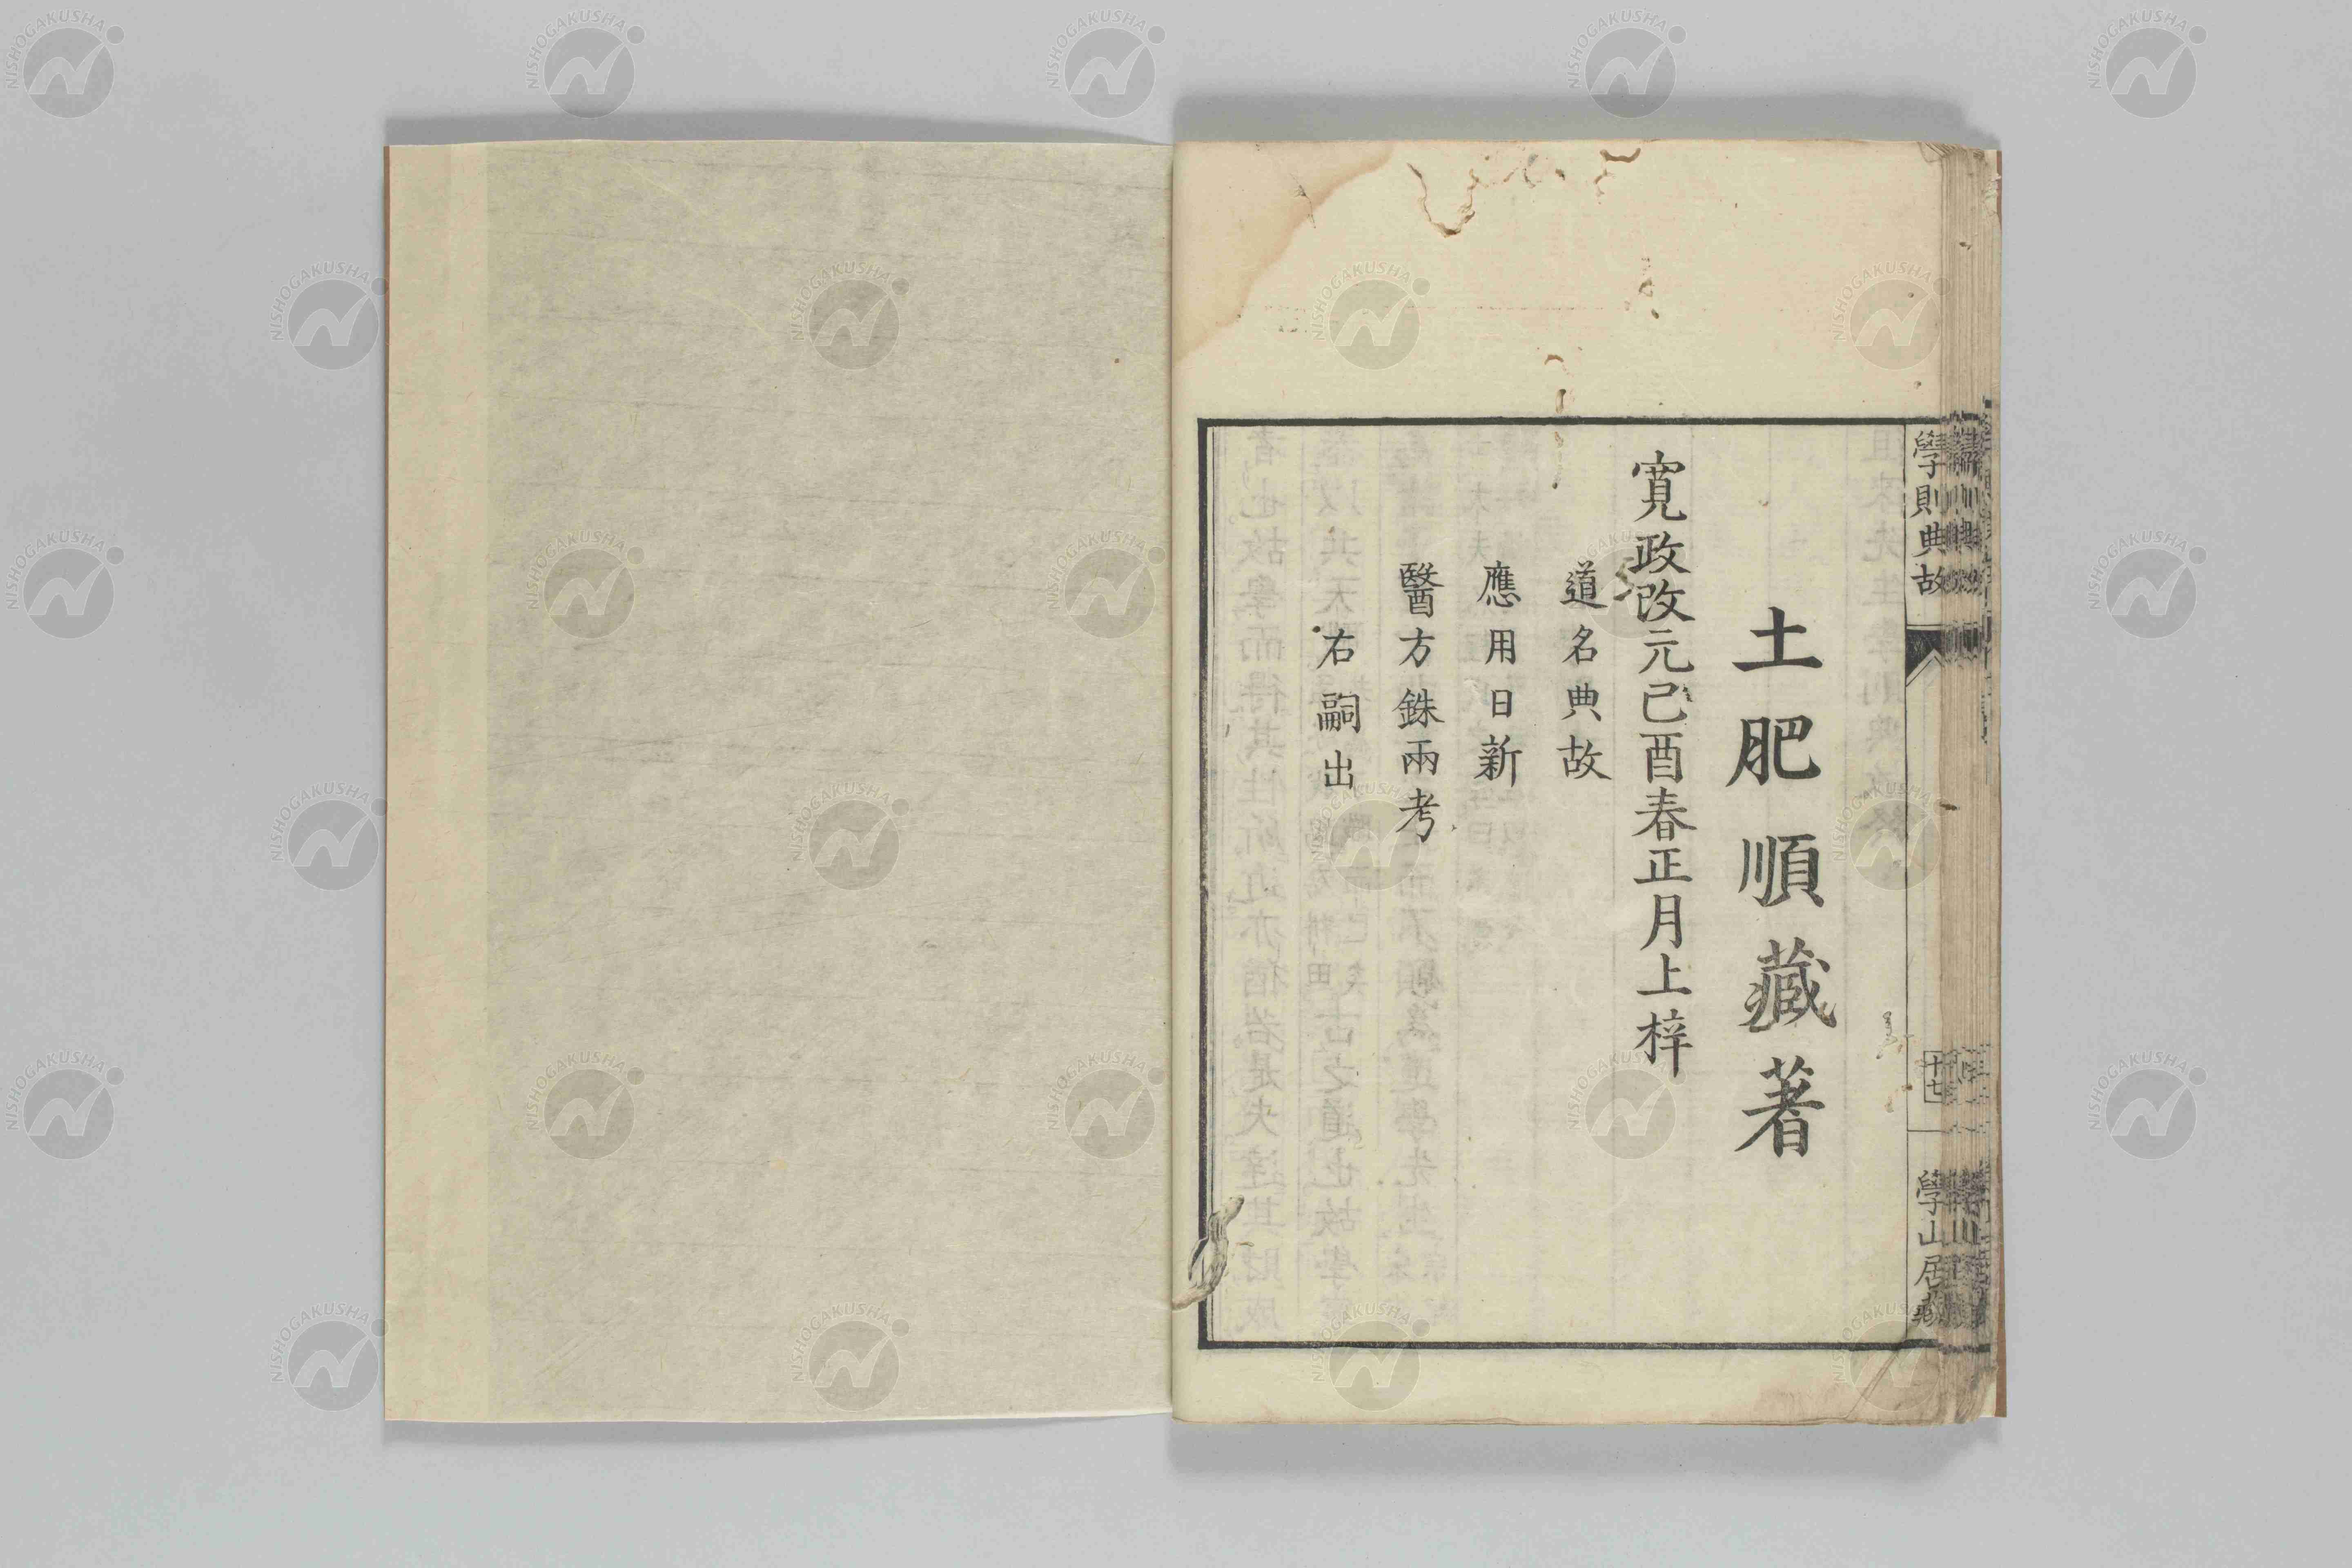 土肥順藏著
寛政改元己酉春正月上梓
道名典故
應用日新
醫方銖兩考
右嗣出
學則典故
十七
學山居藏
NISHOGAKUSHA